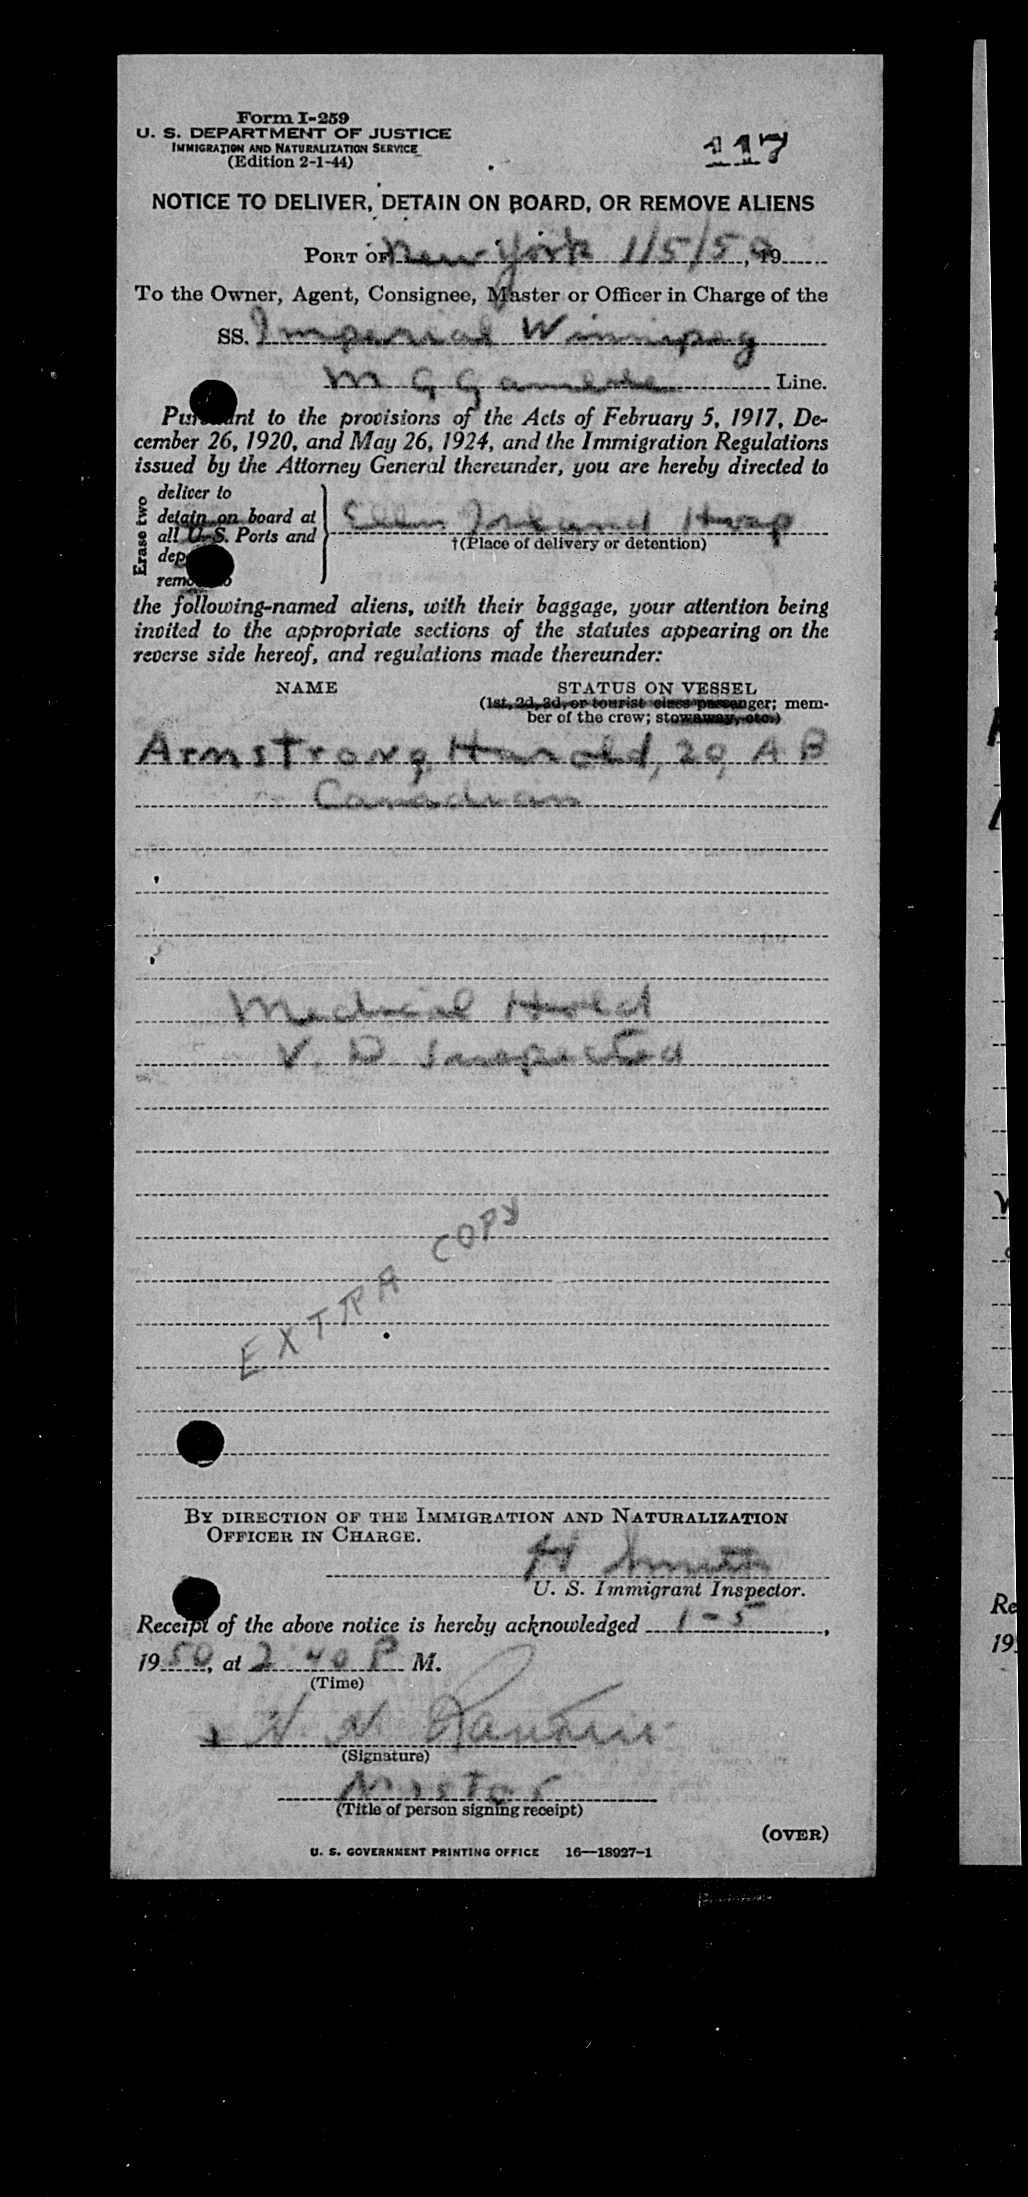 Form I-259
U. S. DEPARTMENT OF JUSTICE
IMMIGRATION AND NATURALIZATION SERVICE
(Edition 2-1-44)
117
NOTICE TO DELIVER, DETAIN ON BOARD, OR REMOVE ALIENS
PORT OF New York 1/5/50, 19
To the Owner, Agent, Consignee, Master or Officer in Charge of the
SS. Imperial Winnipeg
Line.
Pursuant to the provisions of the Acts of February 5, 1917, De-
cember 26, 1920, and May 26, 1924, and the Immigration Regulations
issued by the Attorney General thereunder, you are hereby directed to
Erase two
deliver to
detain on board at
all U. S. Ports and
dep
remo
Ellis Island Hosp
†(Place of delivery or detention)
the following-named aliens, with their baggage, your attention being
invited to the appropriate sections of the statutes appearing on the
reverse side hereof, and regulations made thereunder:
NAME
STATUS ON VESSEL
(1st, 2d, 3d, or tourist class passenger; mem-
ber of the crew; stowaway, etc.)
Armstrong, Harold, 29, A B
Canadian
Medical Hold
V. D. Inspected
EXTRA COPY
BY DIRECTION OF THE IMMIGRATION AND NATURALIZATION
OFFICER IN CHARGE.
H Smith
U. S. Immigrant Inspector.
Receipt of the above notice is hereby acknowledged 1-5,
1950, at 2 40 P M.
(Time)
(Signature)
Master
(Title of person signing receipt)
(OVER)
U. S. GOVERNMENT PRINTING OFFICE 16—18927-1
Re
19